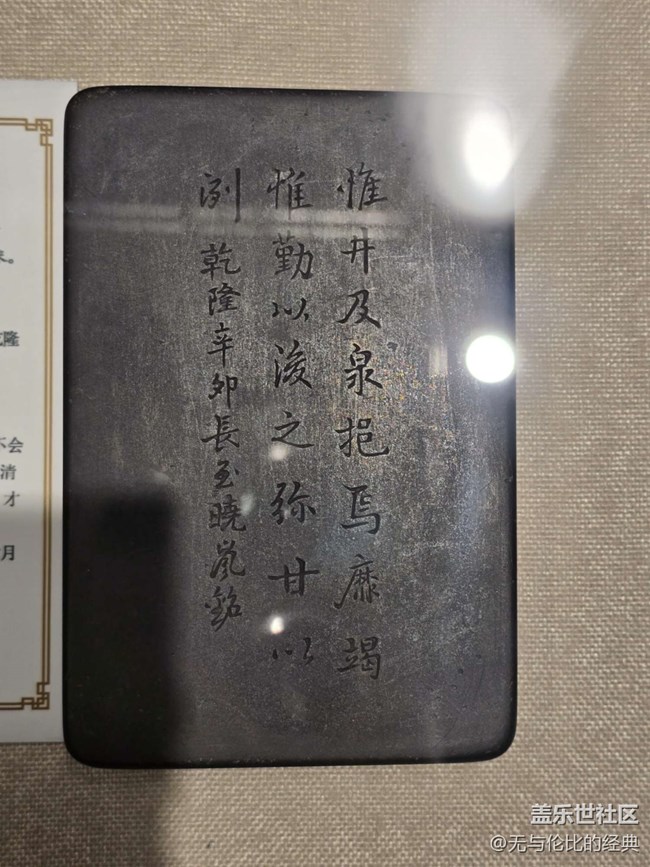 惟井及泉挹焉靡竭
惟勤以浚之弥甘以
洌 乾隆辛卯長至曉嵐銘
。
隆
不会
清
才
月
盖乐世社区
@无与伦比的经典